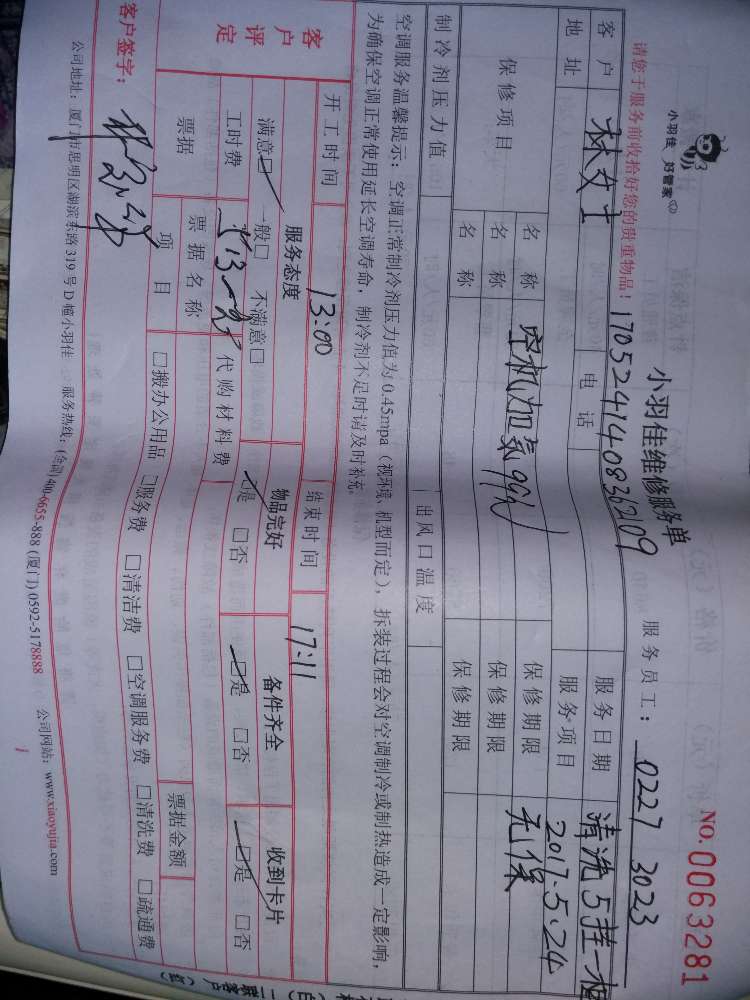 小羽佳 好管家
小羽佳维修服务单
NO. 0063281
请您于服务前收拾好您的贵重物品！ 1705241408362109 服务员工： 0227 3023
客户 林女士 电话 服务日期 清洗5挂一柜
地址 服务项目 2017.5.24
保修项目 名称 空机加氟 保修期限 无保
名称 保修期限
名称 保修期限
制冷剂压力值 出风口温度
空调服务温馨提示：空调正常制冷剂压力值为0.45mpa（视环境、机型而定），拆装过程会对空调制冷或制热造成一定影响，
为确保空调正常使用延长空调寿命，制冷剂不足时请及时补充。
开工时间 13:00 结束时间 17:11
客户评定 服务态度 物品完好 备件齐全 收到卡片
满意☑ 一般□ 不满意□ ☑是 □否 ☑是 □否 ☑是 □否
工时费 代购材料费
票据 票据名称 票据金额
项目 □搬办公用品 □服务费 □清洁费 □空调服务费 □清洗费 □疏通费
客户签字：
公司地址：厦门市思明区湖滨东路319号D幢小羽佳 服务热线：(全国)400-6655-888 (厦门) 0592-5178888 公司网站：www.xiaoyujia.com